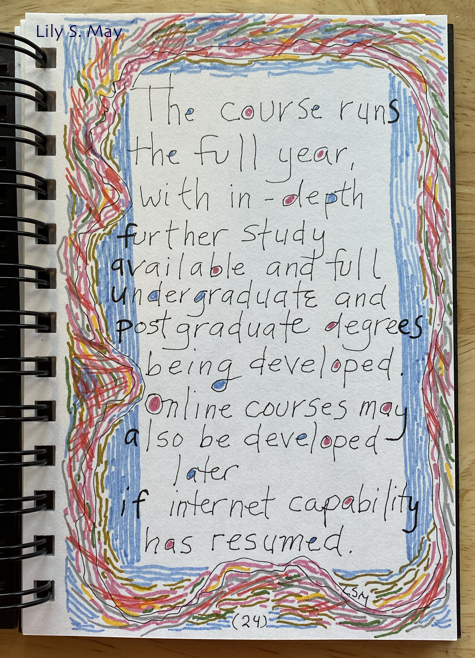 Lily S. May
The course runs
the full year,
with in-depth
further study
available and full
undergraduate and
postgraduate degrees
being developed.
Online courses may
also be developed
later
if internet capability
has resumed.
LSM
(24)